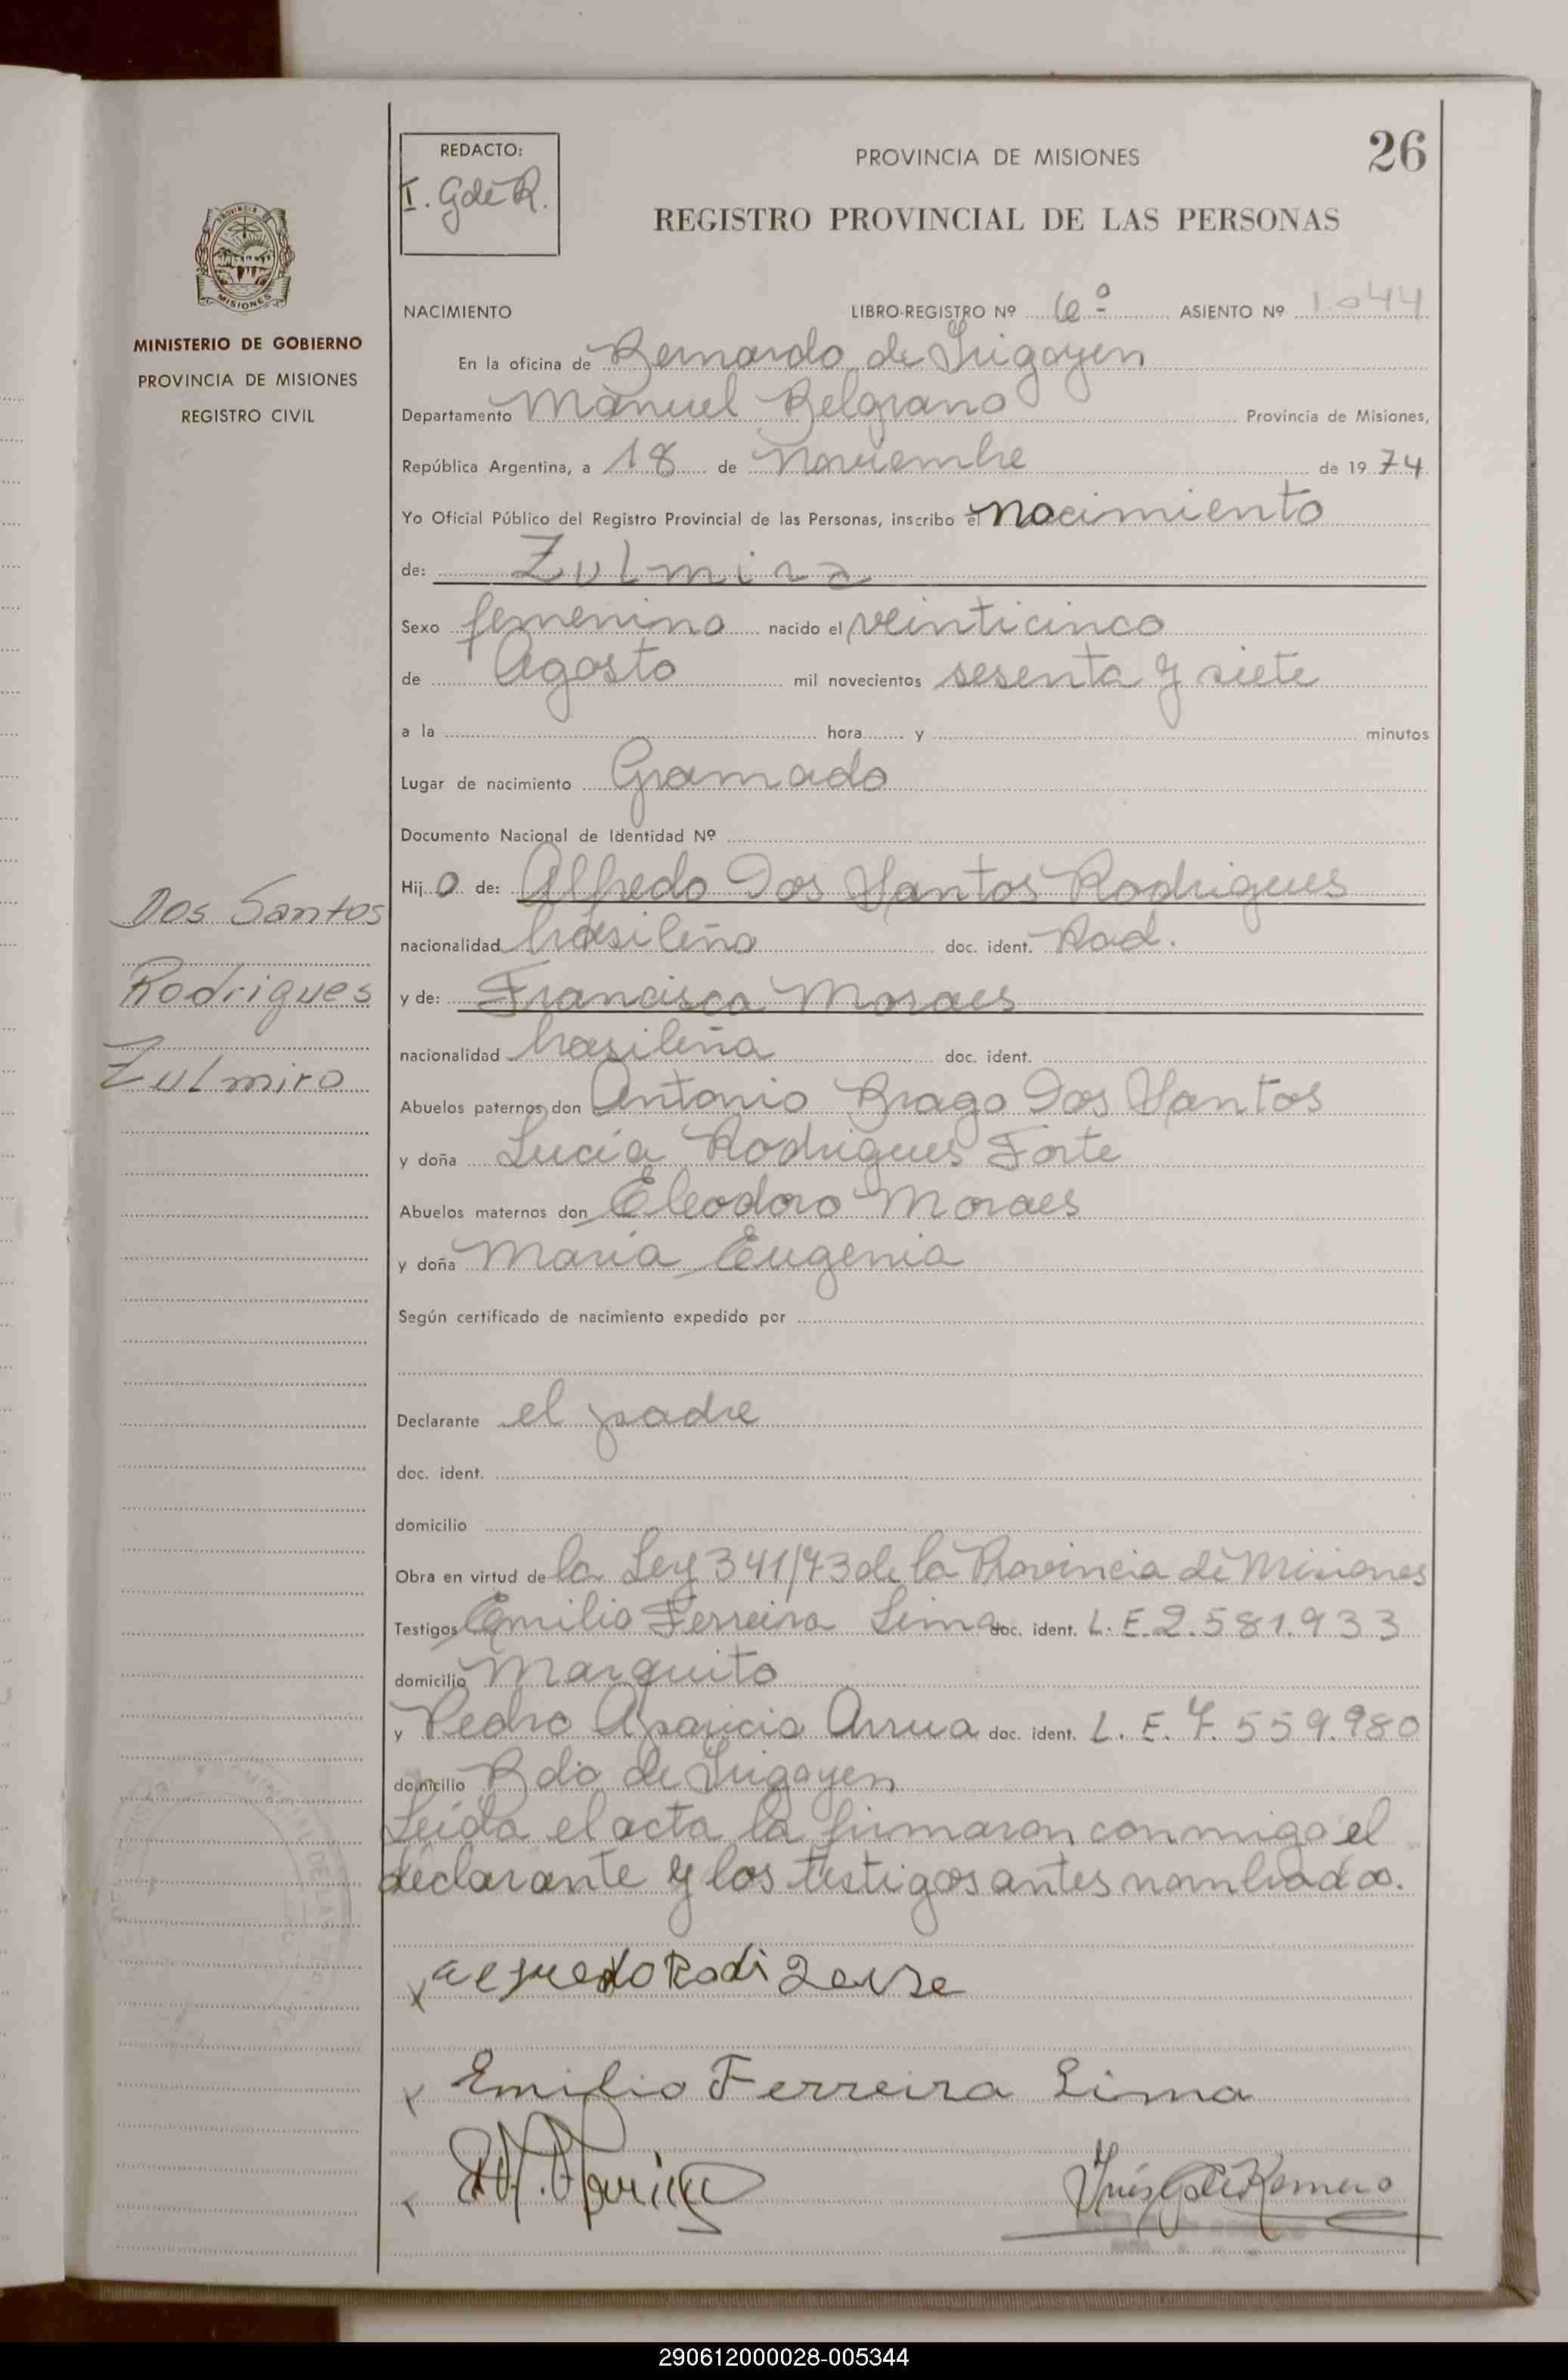 26
REDACTO:
I. G de R.
PROVINCIA DE MISIONES
REGISTRO PROVINCIAL DE LAS PERSONAS
MISIONES
MINISTERIO DE GOBIERNO
PROVINCIA DE MISIONES
REGISTRO CIVIL
NACIMIENTO LIBRO-REGISTRO Nº 6º ASIENTO Nº 1.044
En la oficina de Bernardo de Irigoyen
Departamento Manuel Belgrano Provincia de Misiones,
República Argentina, a 18 de Noviembre de 1974
Yo Oficial Público del Registro Provincial de las Personas, inscribo el nacimiento
de: Zulmira
Sexo femenino nacido el veinticinco
de Agosto mil novecientos sesenta y siete
a la hora y minutos
Lugar de nacimiento Gramado
Documento Nacional de Identidad Nº
Hijo de: Alfredo Dos Santos Rodrigues
nacionalidad brasileño doc. ident. Rad.
y de: Francisca Moraes
nacionalidad brasileña doc. ident.
Abuelos paternos don Antonio Brago Dos Santos
y doña Lucía Rodrigues Forte
Abuelos maternos don Eleodoro Moraes
y doña María Eugenia
Según certificado de nacimiento expedido por
Declarante el padre
doc. ident.
domicilio
Obra en virtud de la Ley 341/73 de la Provincia de Misiones
Testigos Emilio Ferreira Lima doc. ident. L.E. 2.581.933
domicilio Marquito
y Pedro Aparicio Arrua doc. ident. L.E. 7.559.980
domicilio Bdo de Irigoyen
Leída el acta la firmaron conmigo el
declarante y los testigos antes nombrados.
Dos Santos
Rodrigues
Zulmira
Emilio Ferreira Lima
Inés G de Romero
290612000028-005344